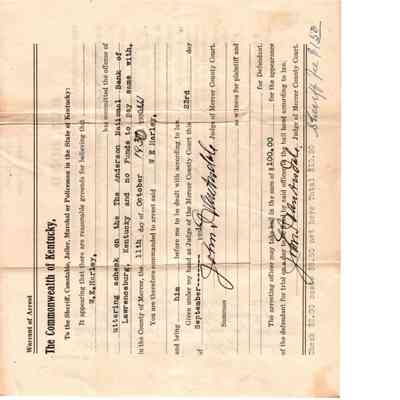 Warrant of Arrest
The Commonwealth of Kentucky,
To the Sheriff, Constable, Jailer, Marshal or Policeman in the State of Kentucky:
It appearing that there are reasonable grounds for believing that
W.E.Harley, has committed the offense of
uttering acheck on the The Anderson National Bank of
Lawrenceburg, Kentucky and no Funds to pay same with,
in the County of Mercer, the 11th day of October
You are therefore commanded to arrest said W E Harley,
and bring him before me to be dealt with according to law.
Given under my hand as Judge of the Mercer County Court this 23rd day
of September
John Judge of Mercer County Court.
Summons as witness for plaintiff and
for Defendant.
The arresting officer may take bail in the sum of $100.00 for the appearance
of the defendant for trial on the said officer the bail bond according to law.
John Judge of Mercer County Court.
Check $2.00 costs not here Total Sheriff fee